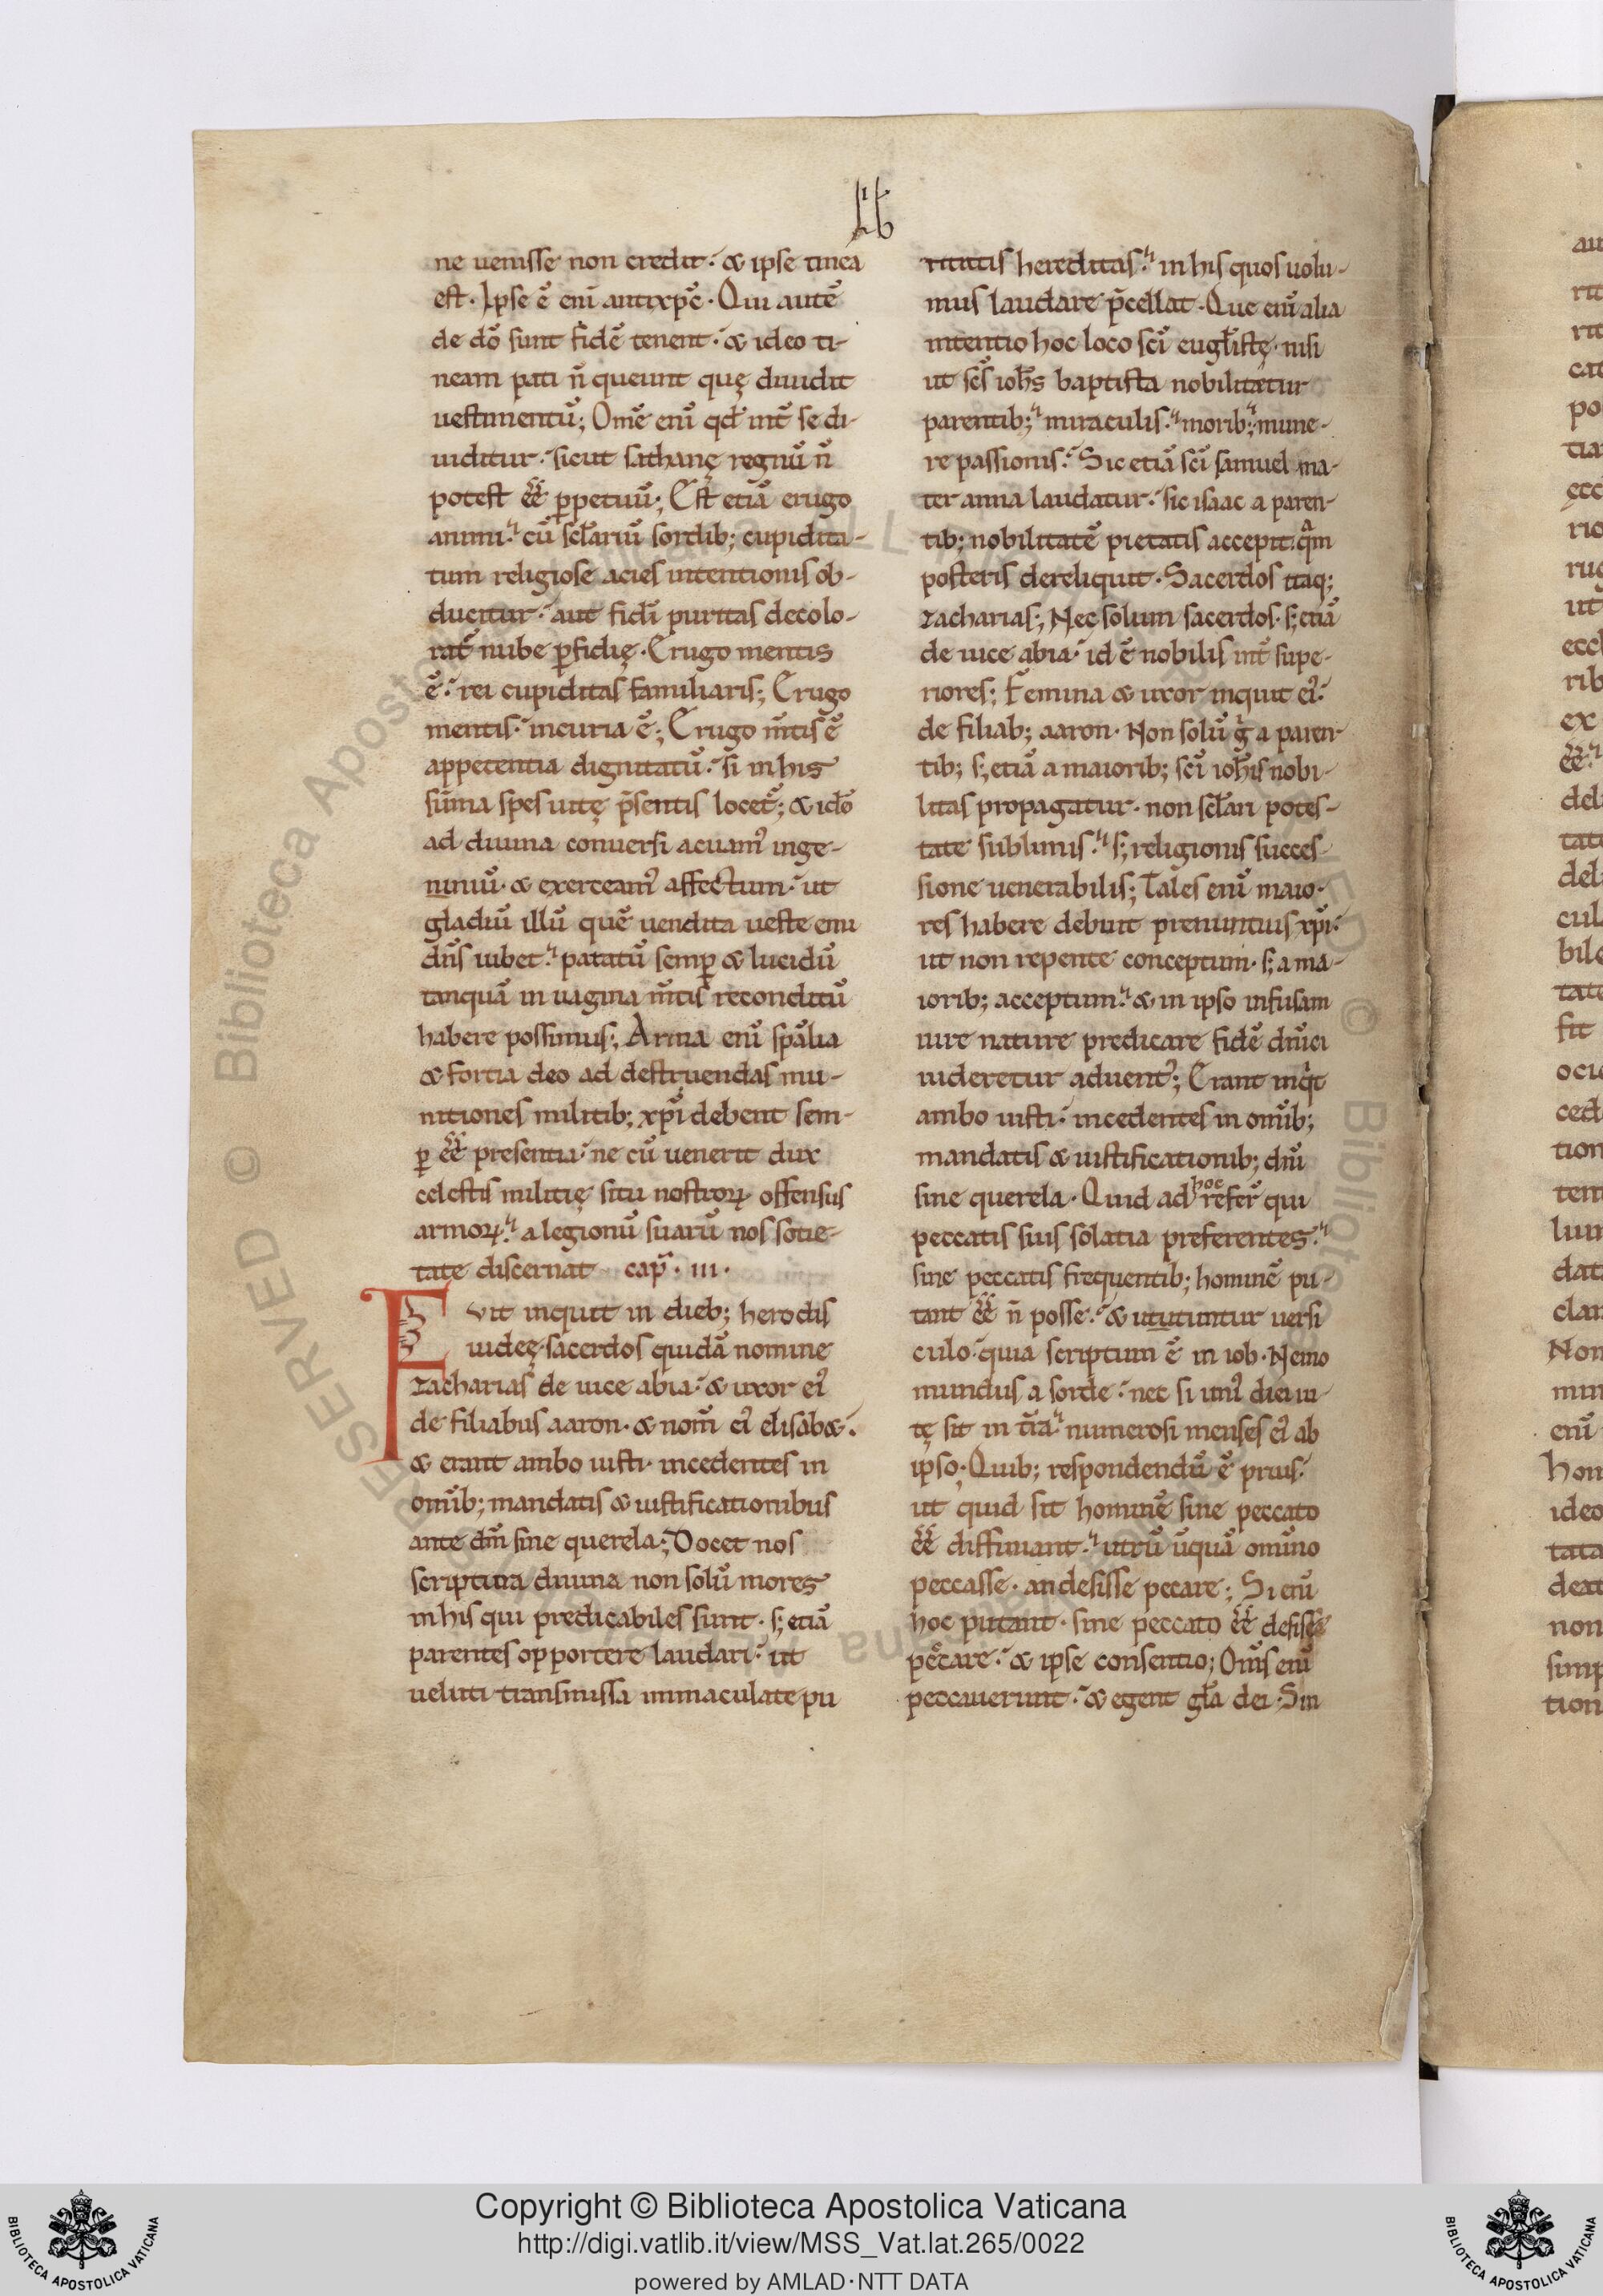 Lib
ne uenisse non credit· & ipse tinea
est· Ipse ē eni antixpē· Qui autē
de dō sunt fidē tenent· & ideo ti-
neam pati n̄ queunt quę diuidit
uestimentū; Om̄e enī qd̄ int̄ se di-
uiditur· sicut sathanę regnū n̄
potest ee̅ ꝑpetuū; Est etiā erugo
animi· cū sclariū sordib; cupidita-
tum religiose acies intentionis ob-
ducitur· aut fidī puritas decolo-
rat̄ nube ꝑfidię· Erugo mentis
ē· rei cupiditas familiaris; Erugo
mentis· incuria ē; Erugo m̄tis ē
appetentia dignitatū· si in his
sūma spes uitę p̄sentis locet̄; & idō
ad diuina conuersi acuam᾿ inge-
niniū· & exerceam᾿ affectum· ut
gladiū illū quē uendita ueste emi
dn̄s iubet· patatū semꝑ & lucidū
tanquā in uagina m̄tis reconditū
habere possimus; Arma enī spālia
& fortia deo ad destruendas mu-
nitiones militib; xpī debent sem-
ꝑ ee̅ presentia· ne cū uenerit dux
celestis militię situ nostroꝝ offensus
armoꝝ· a legionū suarū nos sotie-
tate discernat cap̄· III·
Fvit inquit in dieb; herodis
iudeę· sacerdos quidā nomine
zacharias de uice abia· & uxor ei᾿
de filiabus aaron· & nom̄ ei᾿ elisab&·
& erant ambo iusti· incedentes in
omīb; mandatis & iustificationibus
ante dm̄ sine querela; Docet nos
scriptura diuina non solū mores
in his qui predicabiles sunt· s; etiā
parentes opportere laudari· ut
ueluti transmissa immaculate pu
ritatis hereditas· in his quos uolu-
mus laudare p̄cellat· Que enī alia
intentio hoc loco scī eugl̄istę· nisi
ut scs̄ ioh̄s baptista nobilitetur
parentib; miraculis· morib; mune-
re passionis· Sic etiā scī samuel ma-
ter anna laudatur· sic isaac a paren-
tib; nobilitatē pietatis accepit· qm̄
posteris dereliquit· Sacerdos itaq;
zacharias; Nec solum sacerdos· s; etiā
de uice abia· id ē nobilis int̄ supe-
riores; Femina & uxor inquit ei᾿·
de filiab; aaron· Non solū g̊ a paren-
tib; s; etiā a maiorib; scī ioh̄is nobi-
litas propagatur· non scl̄ari potes-
tate sublimis· s; religionis succes-
sione uenerabilis; Tales enī maio-
res habere debuit prenuntius xpī·
ut non repente conceptum· s; a ma-
iorib; acceptum· & in ipso infusam
iure nature predicare fidē dn̄ici
uideretur aduent᾿; Erant inqͥt
ambo iusti· incedentes in omīb;
mandatis & iustificationib; dn̄i
sine querela· Quid ad hoc refer̄ qui
peccatis suis solatia preferentes·
sine peccatis frequentib; hominē pu-
tant ee̅ n̄ posse· & ututuntur uersi
culo· quia scriptum ē in iob· Nemo
mundus a sorde· nec si uni᾿ diei ui-
tę sit in tr̄a· numerosi menses ei᾿ ab
ipso· Quib; respondendū ē prius·
ut quid sit hominē sine peccato
ee̅ diffiniant· utrū ūquā omīno
peccasse· an desisse pecare; Si enī
hoc putant· sine peccato ee̅ desisse
pecare· & ipse consentio; Om̄s enī
peccauerunt· & egent gl̄a dei· Sin
Copyright © Biblioteca Apostolica Vaticana
http://digi.vatlib.it/view/MSS_Vat.lat.265/0022
powered by AMLAD·NTT DATA